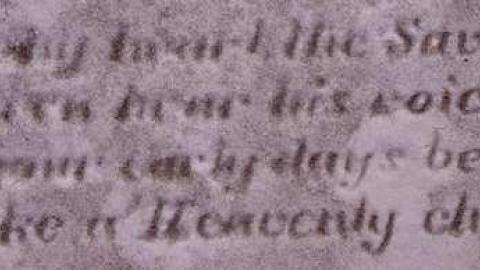 heard the Sav
hear his voic
your early days be
ke a Heavenly ch